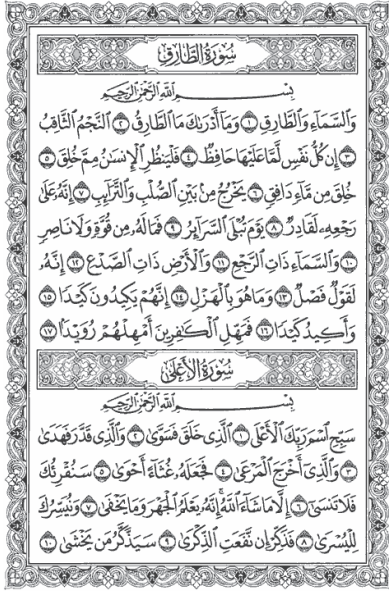 سُورَةُ الطَّارِقِ
بِسْمِ اللَّهِ الرَّحْمَٰنِ الرَّحِيمِ
وَالسَّمَاءِ وَالطَّارِقِ ١ وَمَا أَدْرَىٰكَ مَا الطَّارِقُ ٢ النَّجْمُ الثَّاقِبُ
٣ إِن كُلُّ نَفْسٍ لَّمَّا عَلَيْهَا حَافِظٌ ٤ فَلْيَنظُرِ الْإِنسَٰنُ مِمَّ خُلِقَ ٥
خُلِقَ مِن مَّاءٍ دَافِقٍ ٦ يَخْرُجُ مِنۢ بَيْنِ الصُّلْبِ وَالتَّرَائِبِ ٧ إِنَّهُ عَلَىٰ
رَجْعِهِ لَقَادِرٌ ٨ يَوْمَ تُبْلَى السَّرَائِرُ ٩ فَمَا لَهُ مِن قُوَّةٍ وَلَا نَاصِرٍ
١٠ وَالسَّمَاءِ ذَاتِ الرَّجْعِ ١١ وَالْأَرْضِ ذَاتِ الصَّدْعِ ١٢ إِنَّهُ
لَقَوْلٌ فَصْلٌ ١٣ وَمَا هُوَ بِالْهَزْلِ ١٤ إِنَّهُمْ يَكِيدُونَ كَيْدًا ١٥
وَأَكِيدُ كَيْدًا ١٦ فَمَهِّلِ الْكَٰفِرِينَ أَمْهِلْهُمْ رُوَيْدًا ١٧
سُورَةُ الْأَعْلَىٰ
بِسْمِ اللَّهِ الرَّحْمَٰنِ الرَّحِيمِ
سَبِّحِ اسْمَ رَبِّكَ الْأَعْلَى ١ الَّذِي خَلَقَ فَسَوَّىٰ ٢ وَالَّذِي قَدَّرَ فَهَدَىٰ
٣ وَالَّذِي أَخْرَجَ الْمَرْعَىٰ ٤ فَجَعَلَهُ غُثَاءً أَحْوَىٰ ٥ سَنُقْرِئُكَ
فَلَا تَنسَىٰ ٦ إِلَّا مَا شَاءَ اللَّهُ ۚ إِنَّهُ يَعْلَمُ الْجَهْرَ وَمَا يَخْفَىٰ ٧ وَنُيَسِّرُكَ
لِلْيُسْرَىٰ ٨ فَذَكِّرْ إِن نَّفَعَتِ الذِّكْرَىٰ ٩ سَيَذَّكَّرُ مَن يَخْشَىٰ ١٠